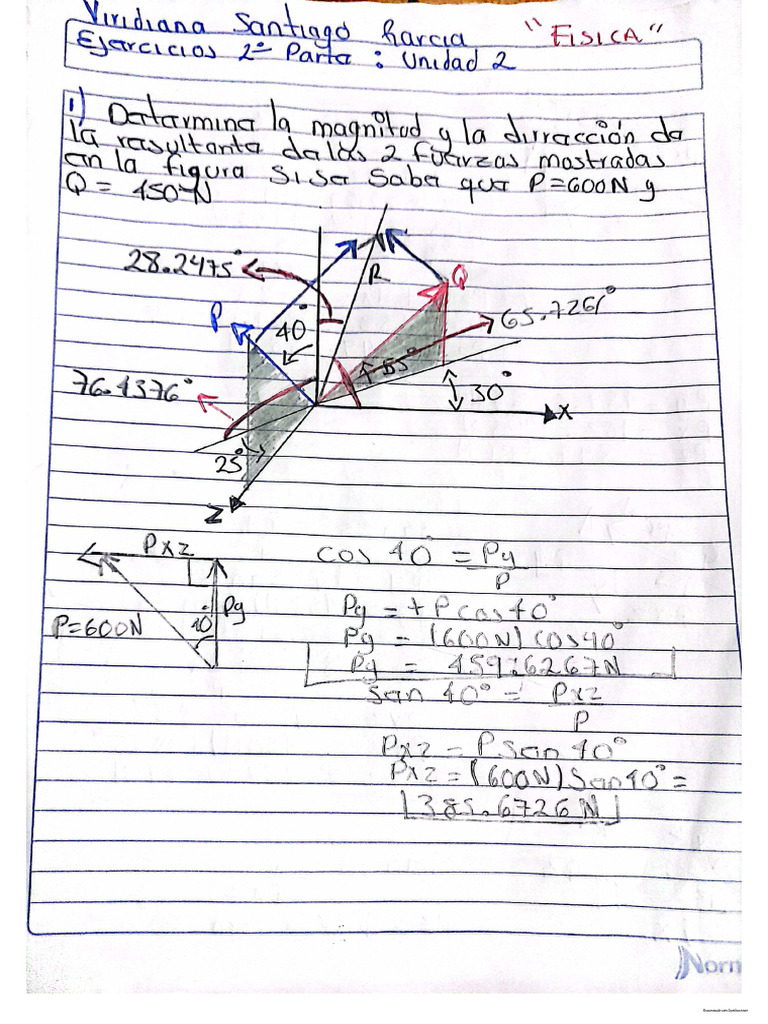 Viridiana Santiago Garcia "FISICA"
Ejercicios 2º Parte : Unidad 2
1) Determina la magnitud y la dirración de
la resultante de las 2 fuerzas mostradas
en la figura si se sabe que P=600N y
Q = 450N
28.2475°
R
Q
P
40°
65.7261°
55°
76.4376°
30°
X
25°
Z
Pxz
cos 40° = Py/P
Py
P=600N
40°
Py = +Pcos40°
Py = (600N)cos40°
Py = 459.6267N
sen 40° = Pxz/P
Pxz = P sen 40°
Pxz = (600N) Sen40° =
385.6726 N
Norm